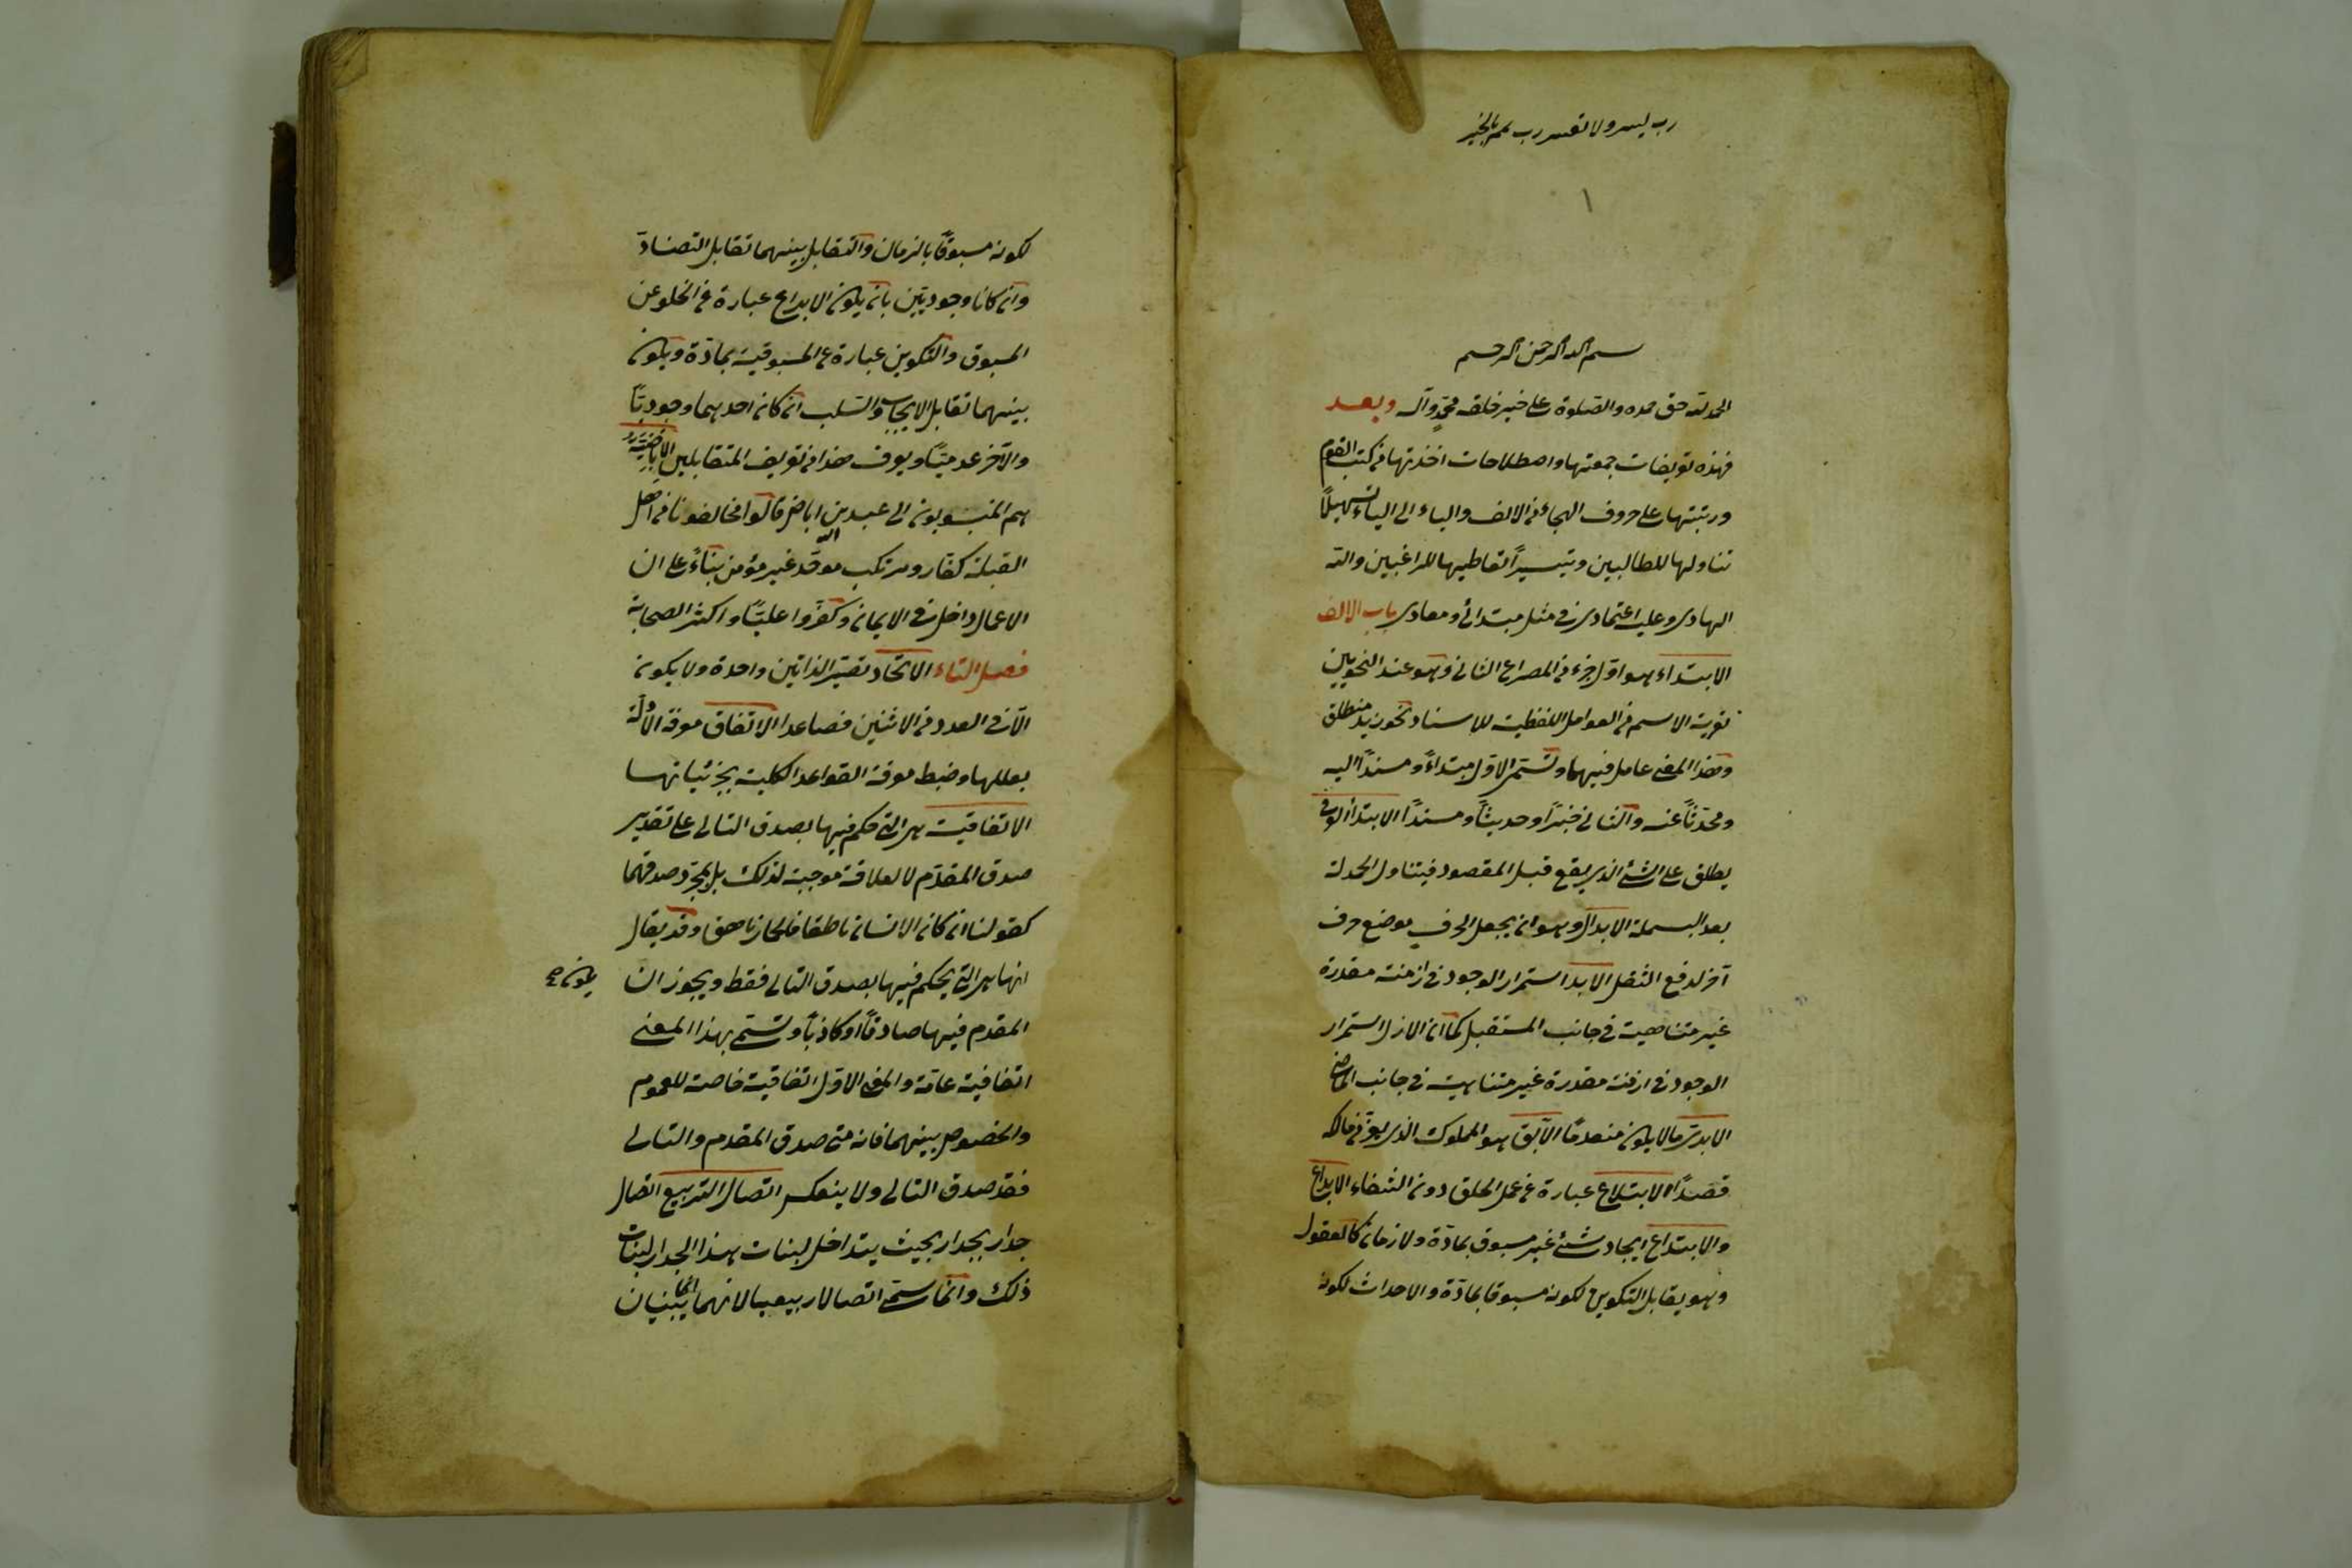 رب يسر ولا تعسر رب تمم بالخير
١
بسم الله الرحمن الرحيم
الحمد لله حق حمده والصلوة على خير خلقه محمد وآله وبعد
فهذه تعريفات جمعتها واصطلاحات اخذتها من كتب القوم
ورتبتها على حروف الهجاء من الالف والباء الى الياء تسهيلاً
تناولها للطالبين وتيسيراً تعاطيها للراغبين والله
الهادى وعليه اعتمادى فى مثل مبتدائى ومعادى باب الالف
الابتداء هو اول جزء من المصراع الثانى وهو عند النحويين
تعرية الاسم من العوامل اللفظية للاسناد نحو زيد منطلق
وهذا المعنى عامل فيهما وتسمى الاول مبتداءً ومسنداً اليه
ومحدثاً عنه والثانى خبراً وحديثاً ومسنداً الابتداء العرفى
يطلق على الشئ الذى يقع قبل المقصود فيتناول الحمدلة
بعد البسملة الابدال وهو ان يجعل حرف موضع حرف
آخر لدفع الثقل الابد استمرار الوجود فى ازمنة مقدرة
غير متناهية فى جانب المستقبل كما ان الازل استمرار
الوجود فى ازمنة مقدرة غير متناهية فى جانب الماضى
الابدى ما لا يكون منعدمًا الآبق هو المملوك الذى يفر من مالكه
قصداً الابتلاع عبارة عن عمل الحلق دون الشفاه الابداع
والابتداع ايجاد شئ غير مسبوق بمادة ولا زمان كالعقول
وهو يقابل التكوين لكونه مسبوقا بمادة والاحداث لكونه
لكونه مسبوقًا بالزمان والتقابل بينهما تقابل التضاد
وان كانا وجوديين بان يكون الابداع عبارة من الخلو عن
المسبوق والتكوين عبارة عن المسبوقية بمادة ويكون
بينهما تقابل الايجاب والسلب ان كان احدهما وجوديًا
والآخر عدميًا ويعرف هذا من تعريف المتقابلين الاباضية
هم المنسوبون الى عبد الله بن اباض قالوا مخالفونا من اهل
القبلة كفار ومرتكب موحد غير مؤمن بناءً على ان
الاعمال داخل فى الايمان وكفروا عليًا واكثر الصحابة
فصل التاء الاتحاد تصيير الذاتين واحدة ولا يكون
الا فى العدد من الاثنين فصاعدا الاتقان معرفة الادلة
بعللها وضبط معرفة القواعد الكلية بجزئياتها
الاتفاقية هى التى حكم فيها بصدق التالى على تقدير
صدق المقدم لا لعلاقة موجبة لذلك بل بمجرد صدقهما
كقولنا ان كان الانسان ناطقا فالحمار ناهق وقد يقال
انها هى التى يحكم فيها بصدق التالى فقط ويجوز ان يكون صح
المقدم فيها صادقاً او كاذباً وتسمى بهذا المعنى
اتفاقية عامة والمعنى الاول اتفاقية خاصة للعموم
والخصوص بينهما فانه متى صدق المقدم والتالى
فقد صدق التالى ولا ينعكس اتصال التربيع اتصال
جدار بجدار بحيث يتداخل لبنات هذا الجدار لبنات
ذلك وانما سمى اتصالا ربيعيا لانهما انما يبنيان